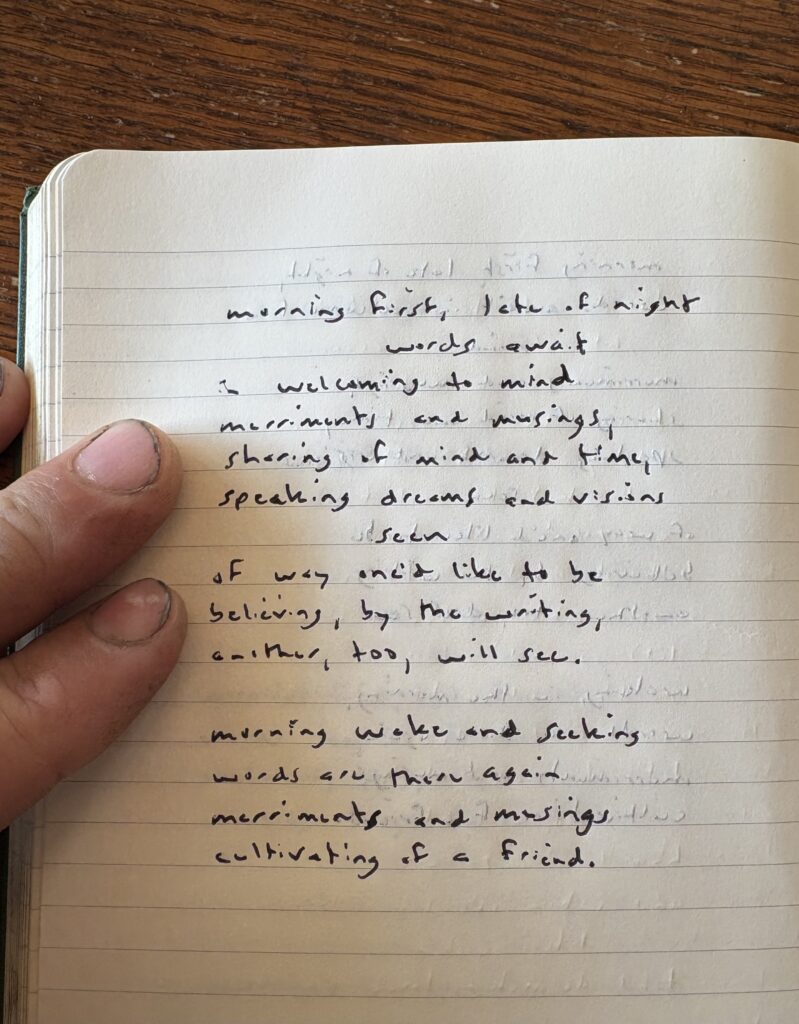 morning first, late of night
words await
in welcoming to mind
merriments and musings,
sharing of mind and time,
speaking dreams and visions
seen
of way one'd like to be
believing, by the writing,
another, too, will see.
morning wake and seeking
words are there again
merriments and musings
cultivating of a friend.